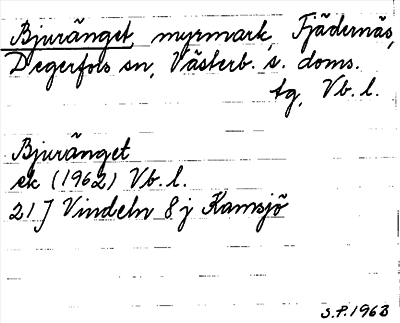 Bjuränget, myrmark, Fjädernäs,
Degerfors sn, Västerb. s. doms.
tg, Vb. l.
Bjuränget
ek (1962) Vb. l.
21 J Vindeln 8 j Kamsjö
S.P. 1963